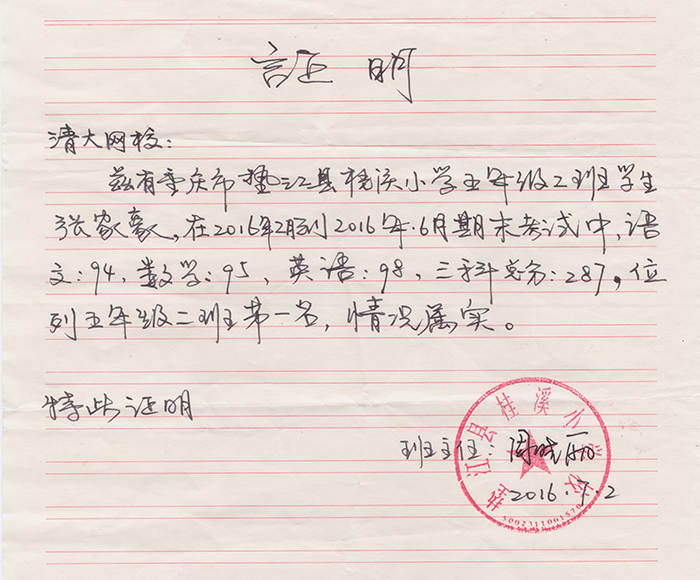 证明
清大网校：
兹有重庆市垫江县桂溪小学五年级二班学生
张家豪，在2016年2月到2016年.6月期末考试中，语
文：94，数学：95，英语：98，三科总分：287，位
列五年级二班第一名，情况属实。
特此证明
垫江县桂溪小学校
班主任：周晓丽
2016.7.2